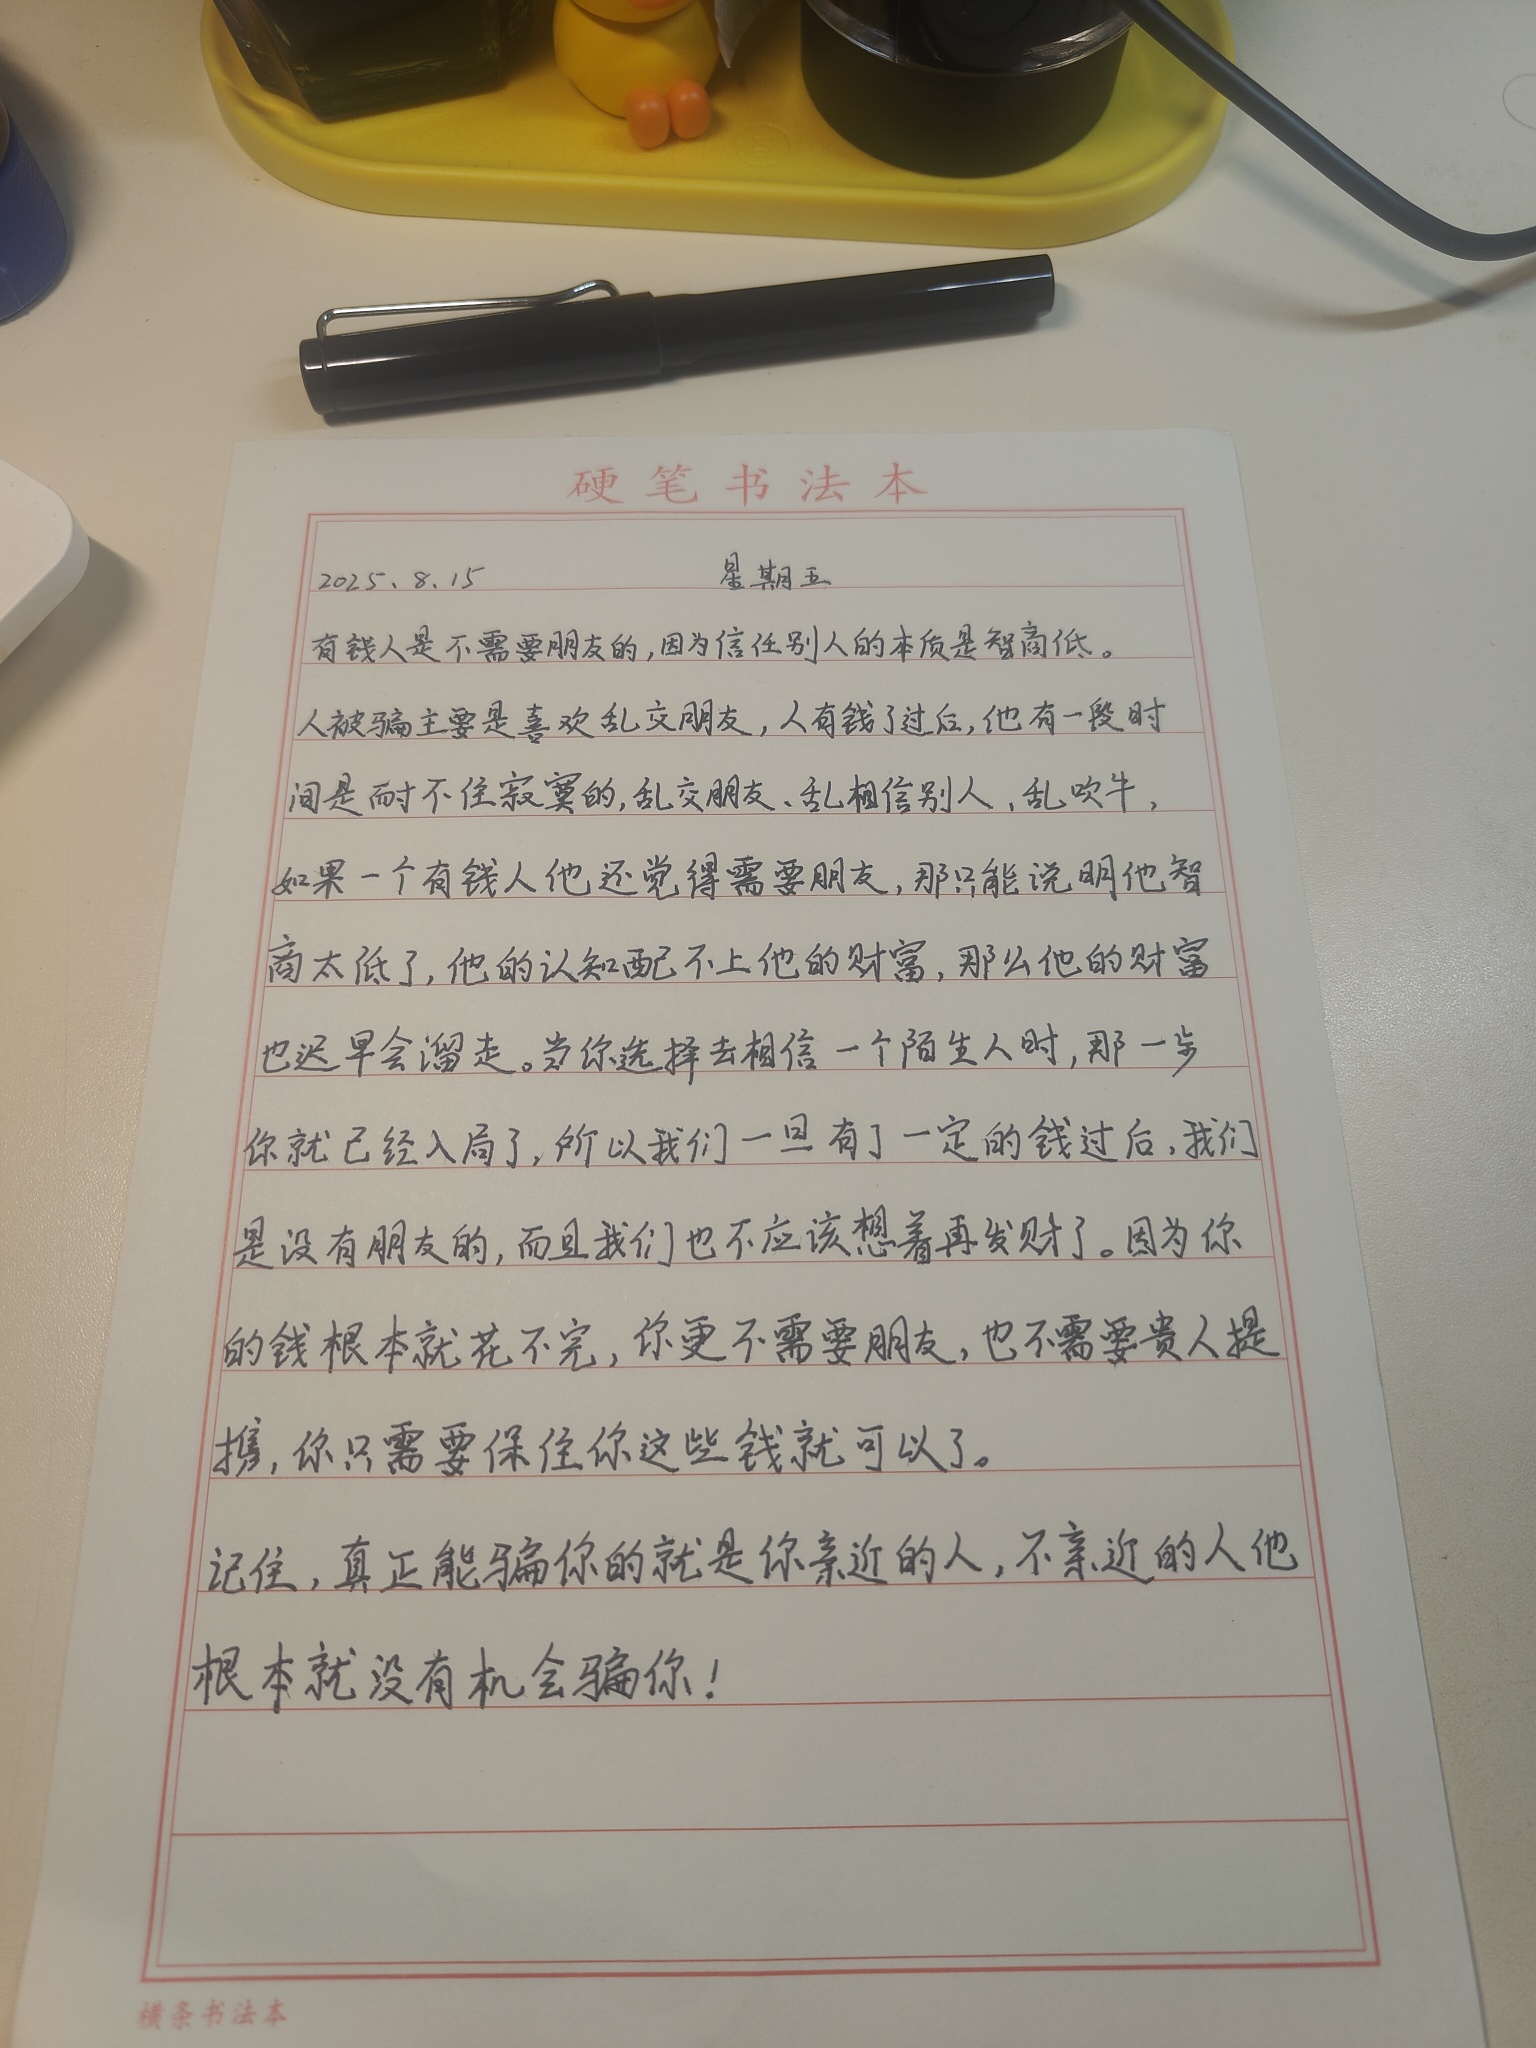 硬笔书法本
2025.8.15 星期五
有钱人是不需要朋友的,因为信任别人的本质是智商低。
人被骗主要是喜欢乱交朋友,人有钱了过后,他有一段时
间是耐不住寂寞的,乱交朋友、乱相信别人,乱吹牛,
如果一个有钱人他还觉得需要朋友,那只能说明他智
商太低了,他的认知配不上他的财富,那么他的财富
也迟早会溜走。当你选择去相信一个陌生人时,那一步
你就已经入局了,所以我们一旦有了一定的钱过后,我们
是没有朋友的,而且我们也不应该想着再发财了。因为你
的钱根本就花不完,你更不需要朋友,也不需要贵人提
携,你只需要保住你这些钱就可以了。
记住,真正能骗你的就是你亲近的人,不亲近的人他
根本就没有机会骗你!
横条书法本